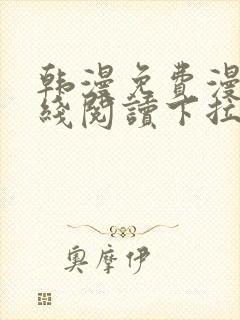 韩漫免費漫
綫閱讀下拉
奥摩伊